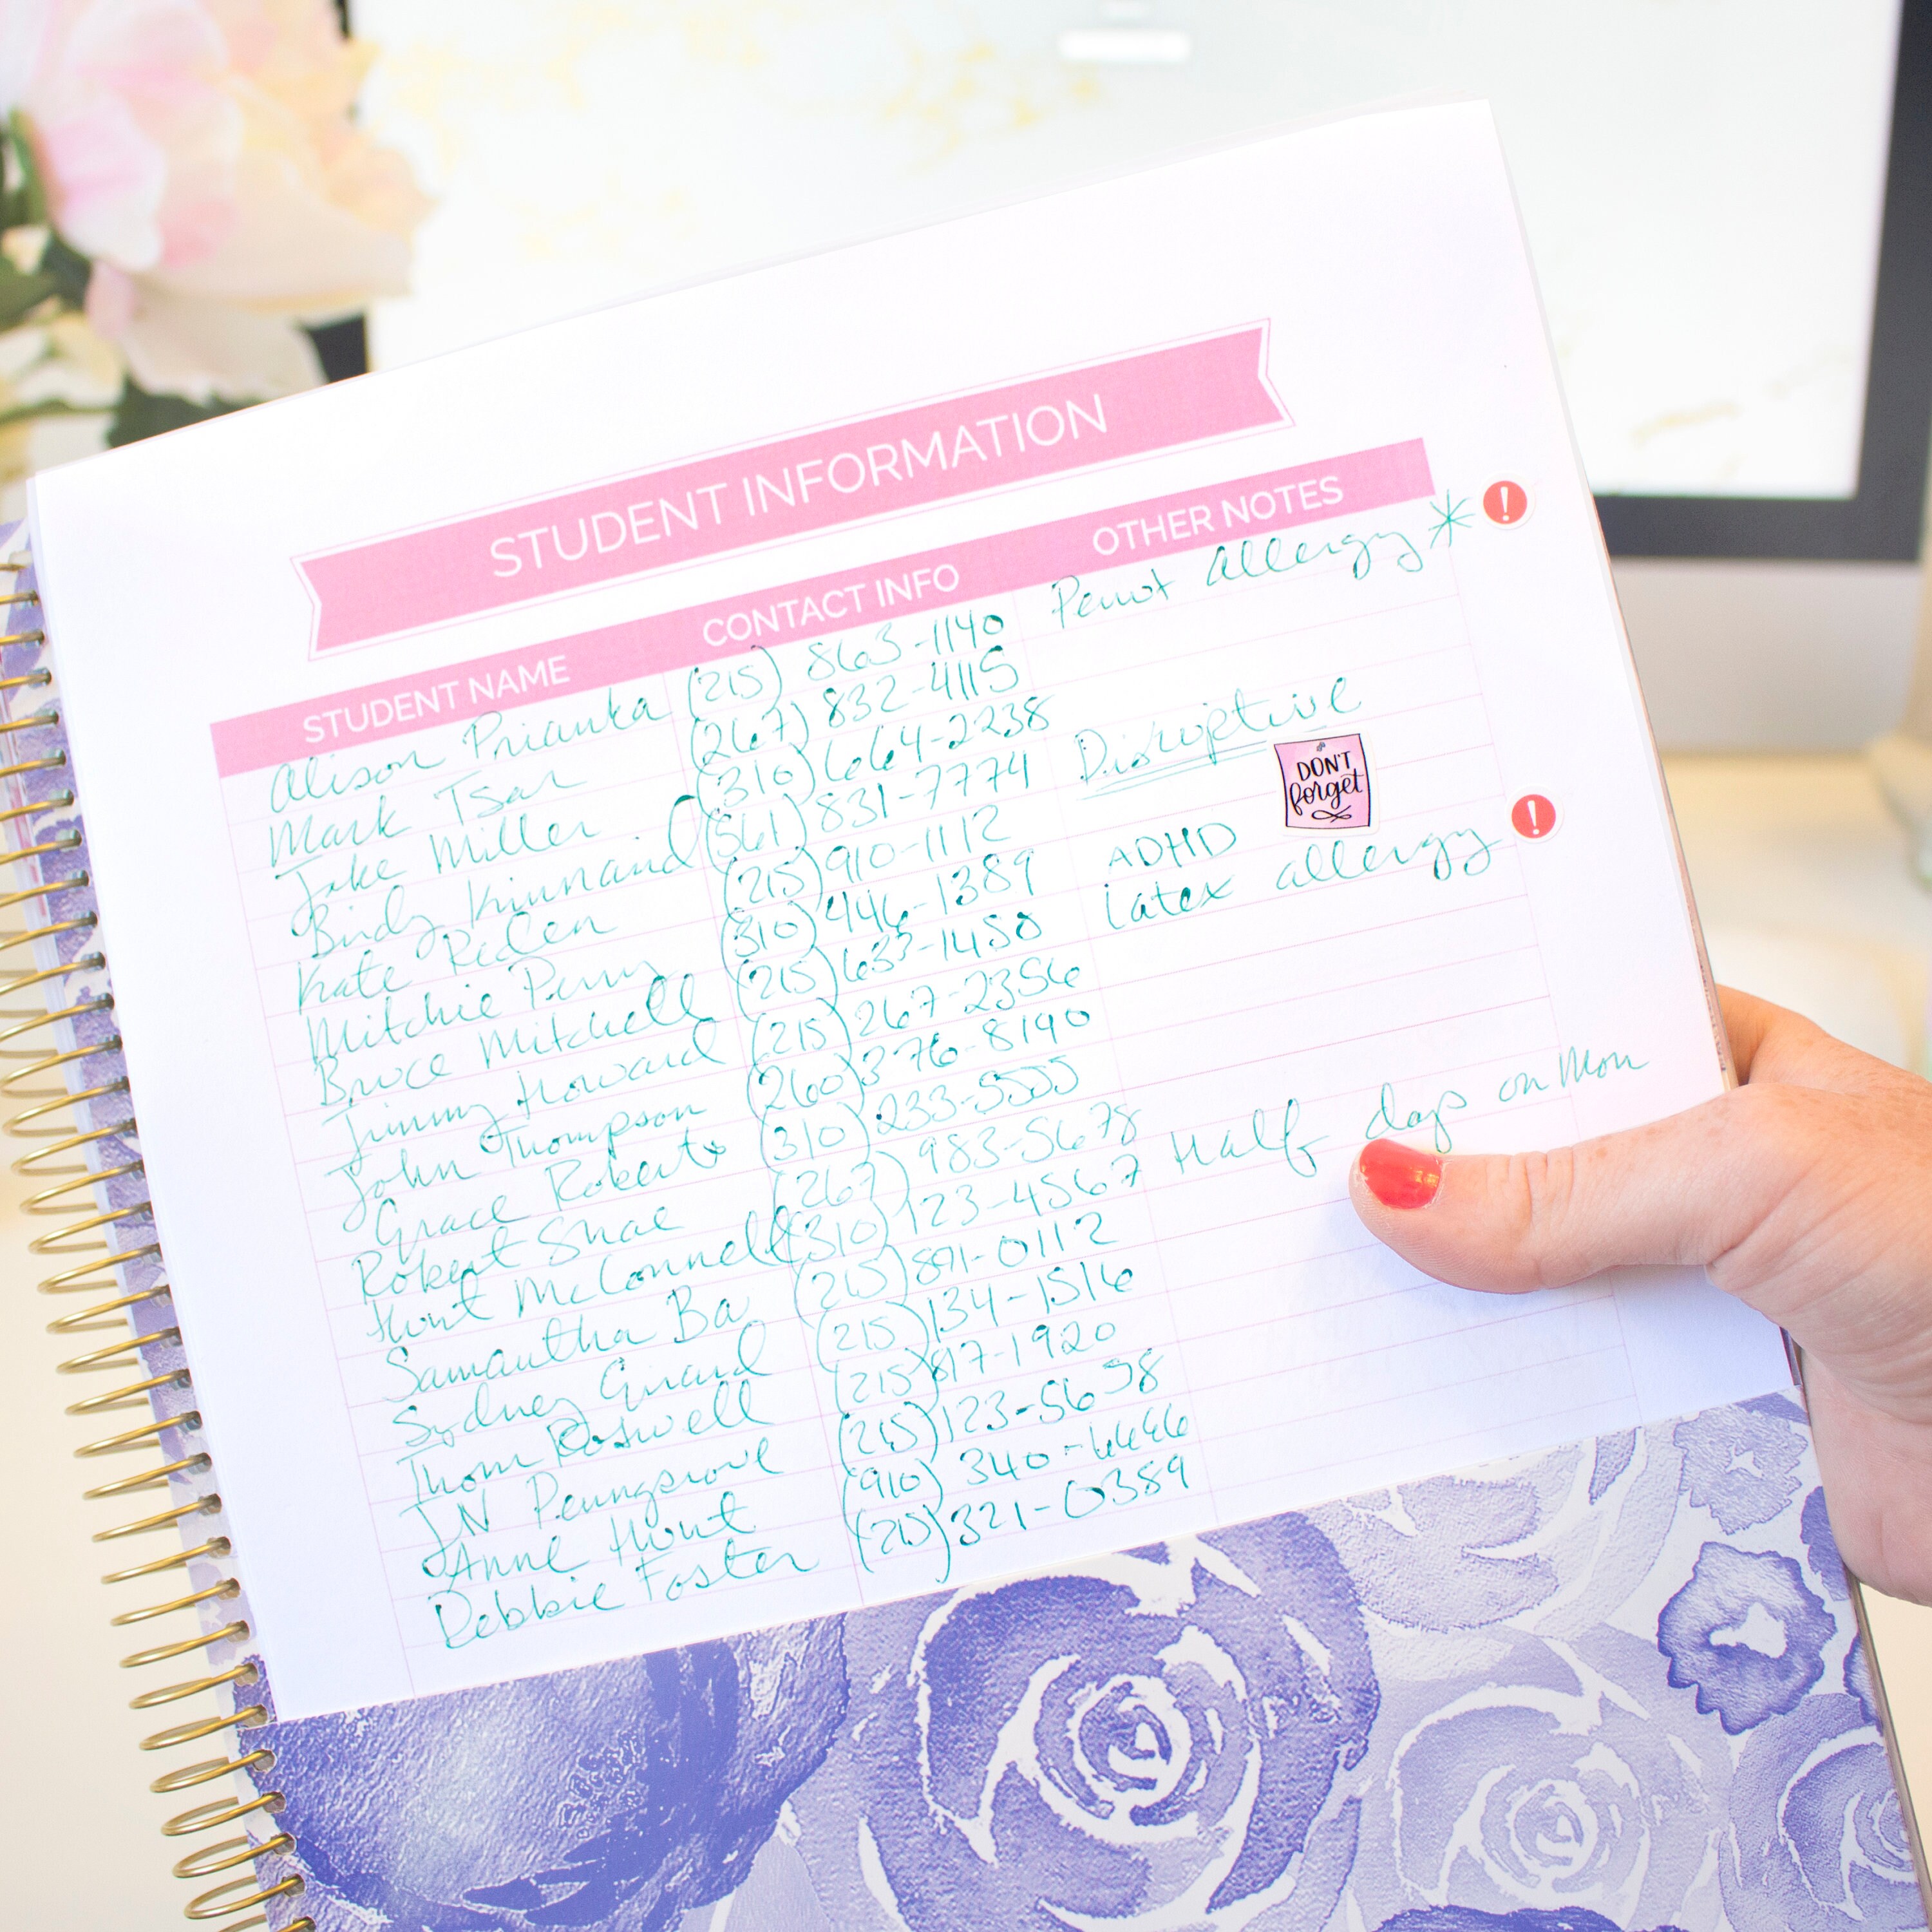 STUDENT INFORMATION
STUDENT NAME CONTACT INFO OTHER NOTES
Alison Prianka (215) 863-1140 Penut allergy * !
Mark Tsar (267) 832-4115
Jake Miller (310) 664-2238 Disruptive
Birdy Kinnaird (561) 831-7774
DON'T
forget
Kate (215) 910-1112 ADHD
Mitchie Perry (310) 446-1389 Latex allergy !
Bruce Mitchell (215) 633-1450
Jimmy Howard (215) 267-2356
John Thompson (260) 376-8190
Grace Roberts (310) 233-5555
Robert Shae (267) 983-5678 Half days on Mon
Hunt McConnell (310) 123-4567
Samantha Ba (215) 891-0112
Sydney Girard (215) 134-1516
Thom Roswell (215) 817-1920
JN Penngrove (215) 123-5698
Anne Hunt (910) 340-6666
Debbie Foster (215) 321-0389